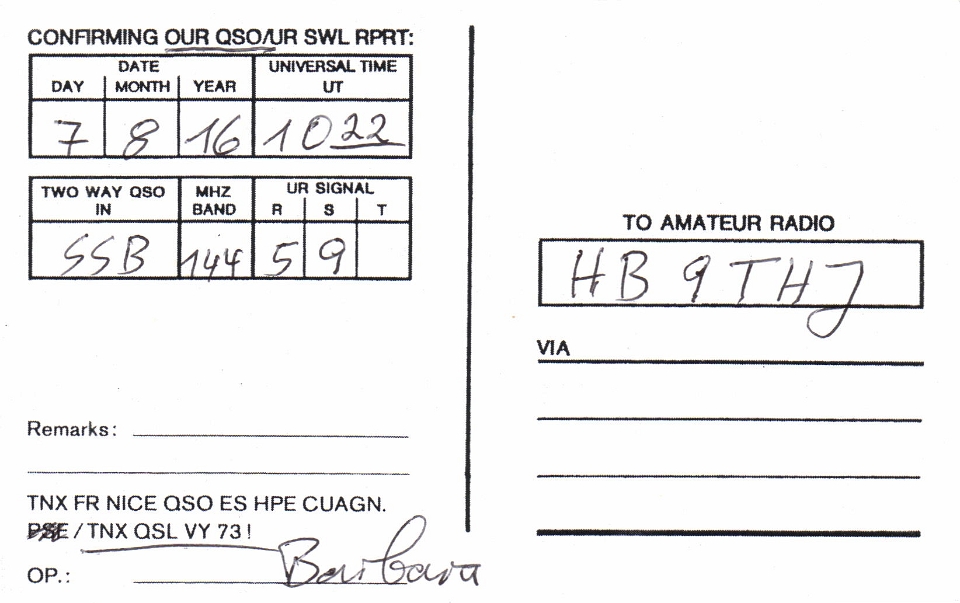 CONFIRMING OUR QSO/UR SWL RPRT:
DATE UNIVERSAL TIME
DAY MONTH YEAR UT
7 8 16 1022
TWO WAY QSO MHZ UR SIGNAL
IN BAND R S T
SSB 144 5 9
Remarks:
TNX FR NICE QSO ES HPE CUAGN.
PSE / TNX QSL VY 73!
OP.: Barbara
TO AMATEUR RADIO
HB9THJ
VIA